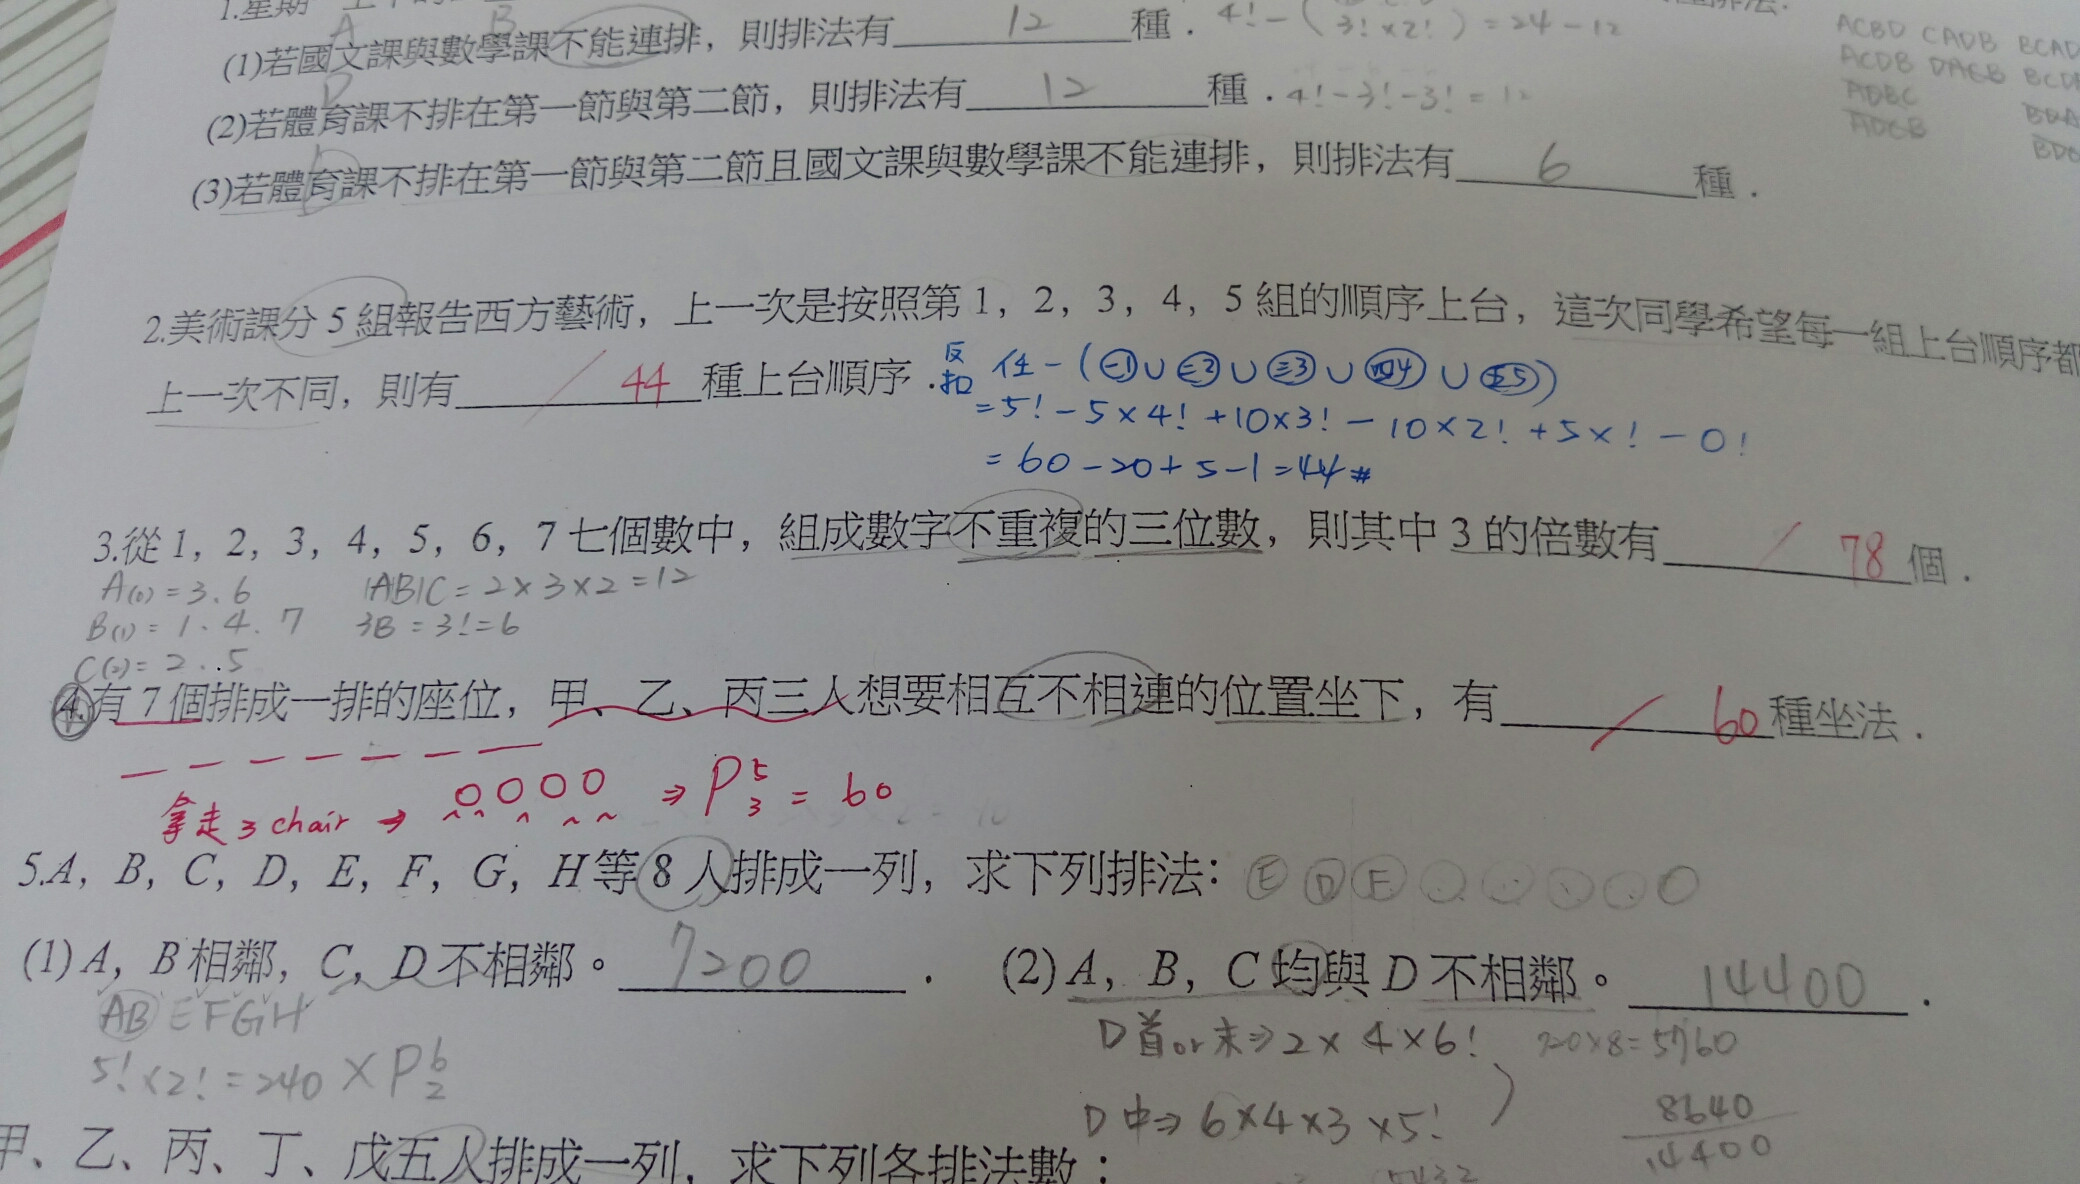 1.星期
A B
(1)若國文課與數學課不能連排，則排法有 12 種．4!-(3!×2!)=24-12
D
(2)若體育課不排在第一節與第二節，則排法有 12 種．4!-3!-3!=12
ACBD CADB BCAD
ACDB DACB
ADBC
ADCB
(3)若體育課不排在第一節與第二節且國文課與數學課不能連排，則排法有 6 種．
2.美術課分5組報告西方藝術，上一次是按照第1，2，3，4，5組的順序上台，這次同學希望每一組上台順序都
上一次不同，則有 44 種上台順序．
反扣 任-(一1∪二2∪三3∪四4∪五5)
=5!-5×4!+10×3!-10×2!+5×!-0!
=60-20+5-1=44#
3.從1，2，3，4，5，6，7七個數中，組成數字不重複的三位數，則其中3的倍數有 78 個．
A(0)=3.6 1A1B1C=2×3×2=12
B(1)=1.4.7 3B=3!=6
C(2)=2..5
4.有7個排成一排的座位，甲、乙、丙三人想要相互不相連的位置坐下，有 60 種坐法．
拿走3 chair → OOOO ⇒ P⁵₃ = 60
5.A，B，C，D，E，F，G，H等8人排成一列，求下列排法： E D F
(1) A，B相鄰，C，D不相鄰。 7200 ． (2) A，B，C均與D不相鄰。 14400 ．
AB EFGH
5!×2!=240×P⁶₂
D首or末⇒2×4×6! 720×8=5760
D中⇒6×4×3×5! 8640
14400
甲、乙、丙、丁、戊五人排成一列，求下列各排法數：